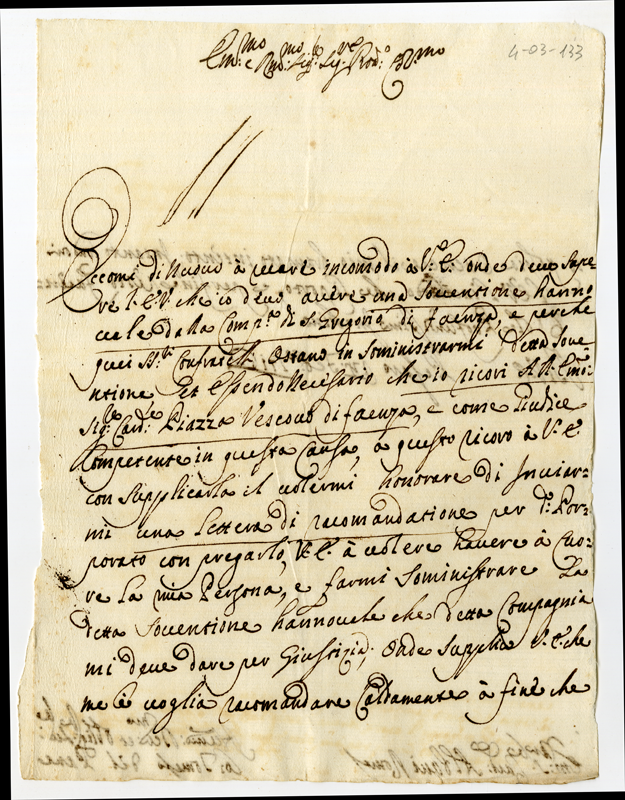 4-03-133
Em:mo e Rmo: Sigr: Sigre: Prone: Colmo
Eccomi di nuovo à recare incomodo à V:ª E:ª onde deve Sape-
re l: E.V: che io devo avere una Soventione hanno
vele dalla Comp:ª di S. Gregorio di faenza, e perche
quei SS:ri Confratelli Ostano in Soministrarmi detta Sove-
ntione Et Essendo Necesario che io ricori All: Em̃o:
Sig:re Card:le Piazza Vescovo di faenza, e come Giudice
Competente in questa Causa, à questo ricoro à V:ª E:ª
con Supplicarla il volermi honorare di Inviar-
mi una Lettera di racomandatione per d:º Por-
porato con pregarlo, V:ª E:ª à volere havere à Cuo-
re La mia Persona, e farmi Soministrare La
detta Soventione hannovele che detta Compagnia
mi deve dare per Giustizia; Onde Supplico V:ª E:ª che
me li voglia racomandare Caldamente à fine che